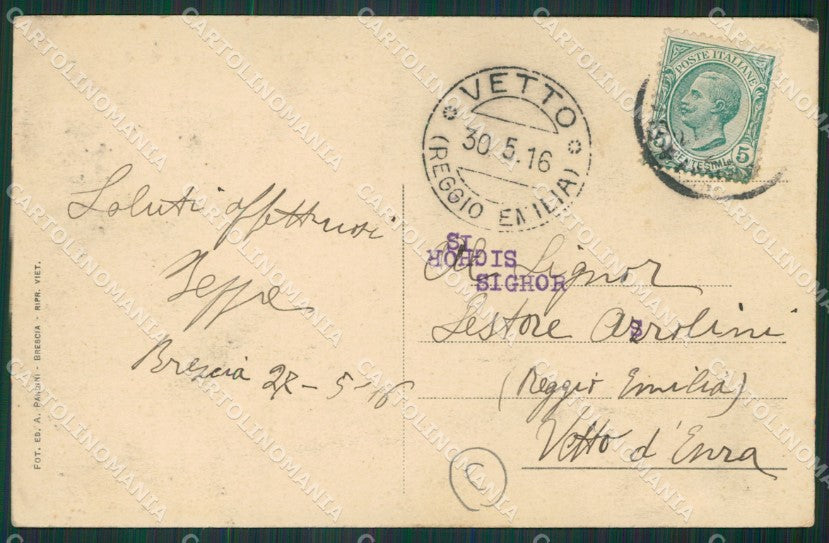 POSTE ITALIANE
CENTESIMI 5
VETTO
30.5.16
(REGGIO EMILIA)
Saluti affettuosi
Beppe
Brescia 28-5-16
SI
SIGHOR
S
Al Signor
Nestore Azzolini
(Reggio Emilia)
Vetto d'Enza
C
FOT. ED. A. PANDINI - BRESCIA - RIPR. VIET.
CARTOLINOMANIA